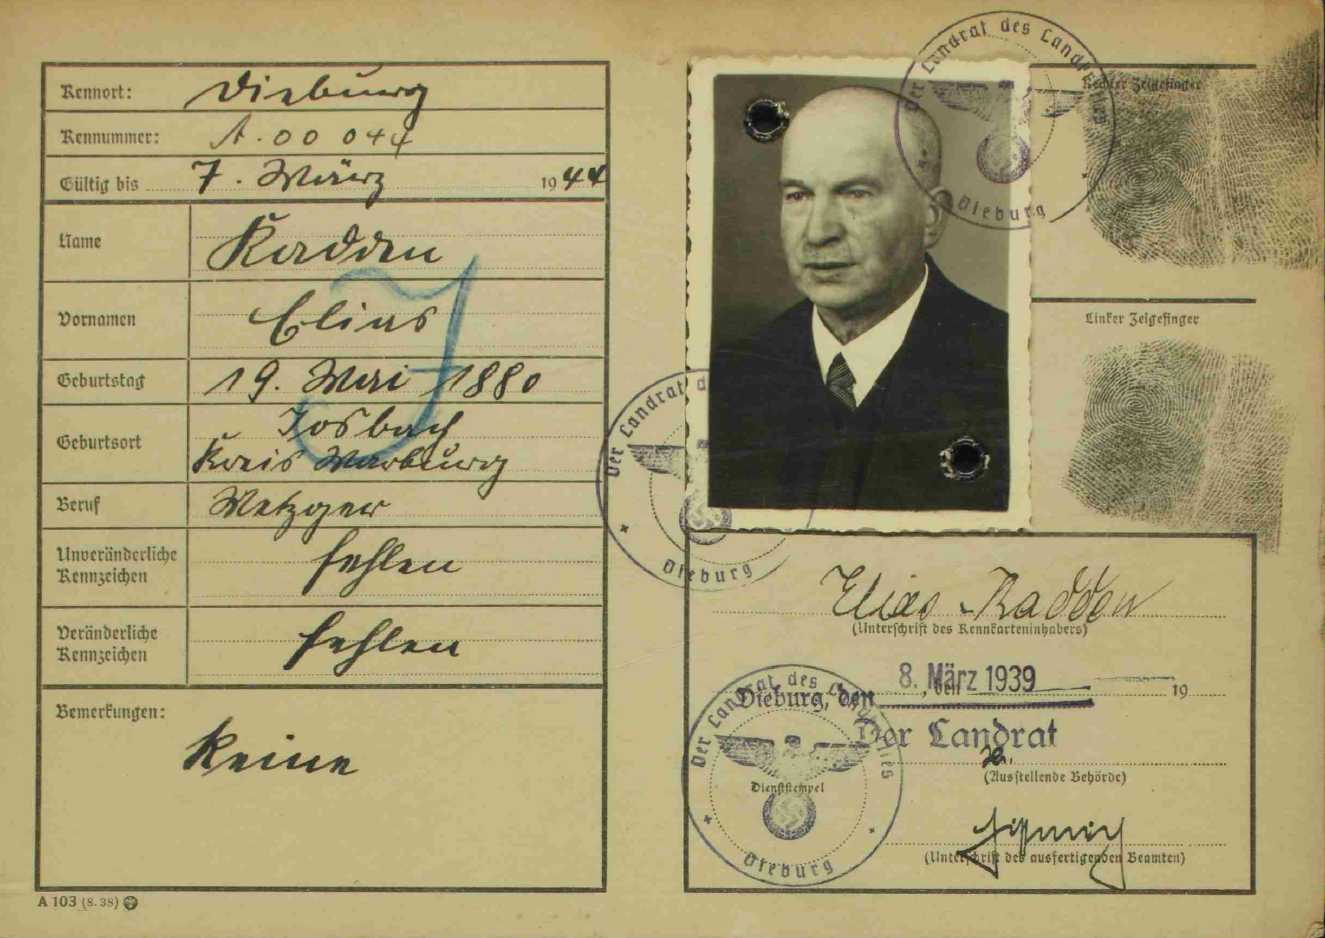 Kennort: Dieburg
Kennummer: A.00 044
Gültig bis 7. März 1944
Name Kaddon
Vornamen Elias
Geburtstag 19. Mai 1880
Geburtsort Josbach
Kreis Marburg
Beruf Metzger
Unveränderliche
Kennzeichen fehlen
Veränderliche
Kennzeichen fehlen
Bemerkungen:
Keine
J
A 103 (8. 38)
Der Landrat des
Dieburg
Rechter Zeigefinger
Linker Zeigefinger
Der Landrat
Dieburg
Elias Kaddon
(Unterschrift des Kennkarteninhabers)
Dieburg, den 8. März 1939 19
Der Landrat
(Ausstellende Behörde)
Der Landrat des
Dienststempel
Dieburg
(Unterschrift des ausfertigenden Beamten)